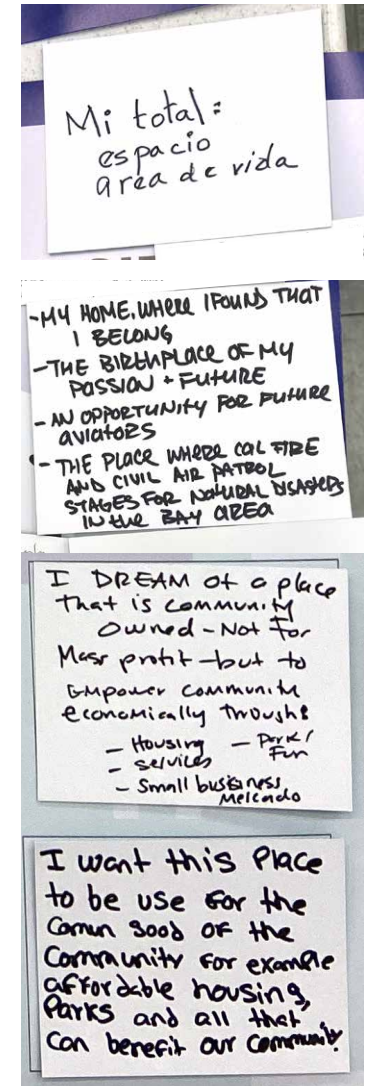 Mi total:
espacio
area de vida
- MY HOME, WHERE I FOUND THAT
I BELONG
- THE BIRTHPLACE OF MY
PASSION + FUTURE
- AN OPPORTUNITY FOR FUTURE
AVIATORS
- THE PLACE WHERE CAL FIRE
AND CIVIL AIR PATROL
STAGES FOR NATURAL DISASTERS
IN the BAY AREA
I DREAM of a place
that is community
Owned - Not for
Mass profit - but to
Empower community
economically through:
- Housing - Park/
Fun
- services
- Small business
Mercado
I want this Place
to be use for the
Comun good of the
Community for example
affordable housing,
Parks and all that
can benefit our community.